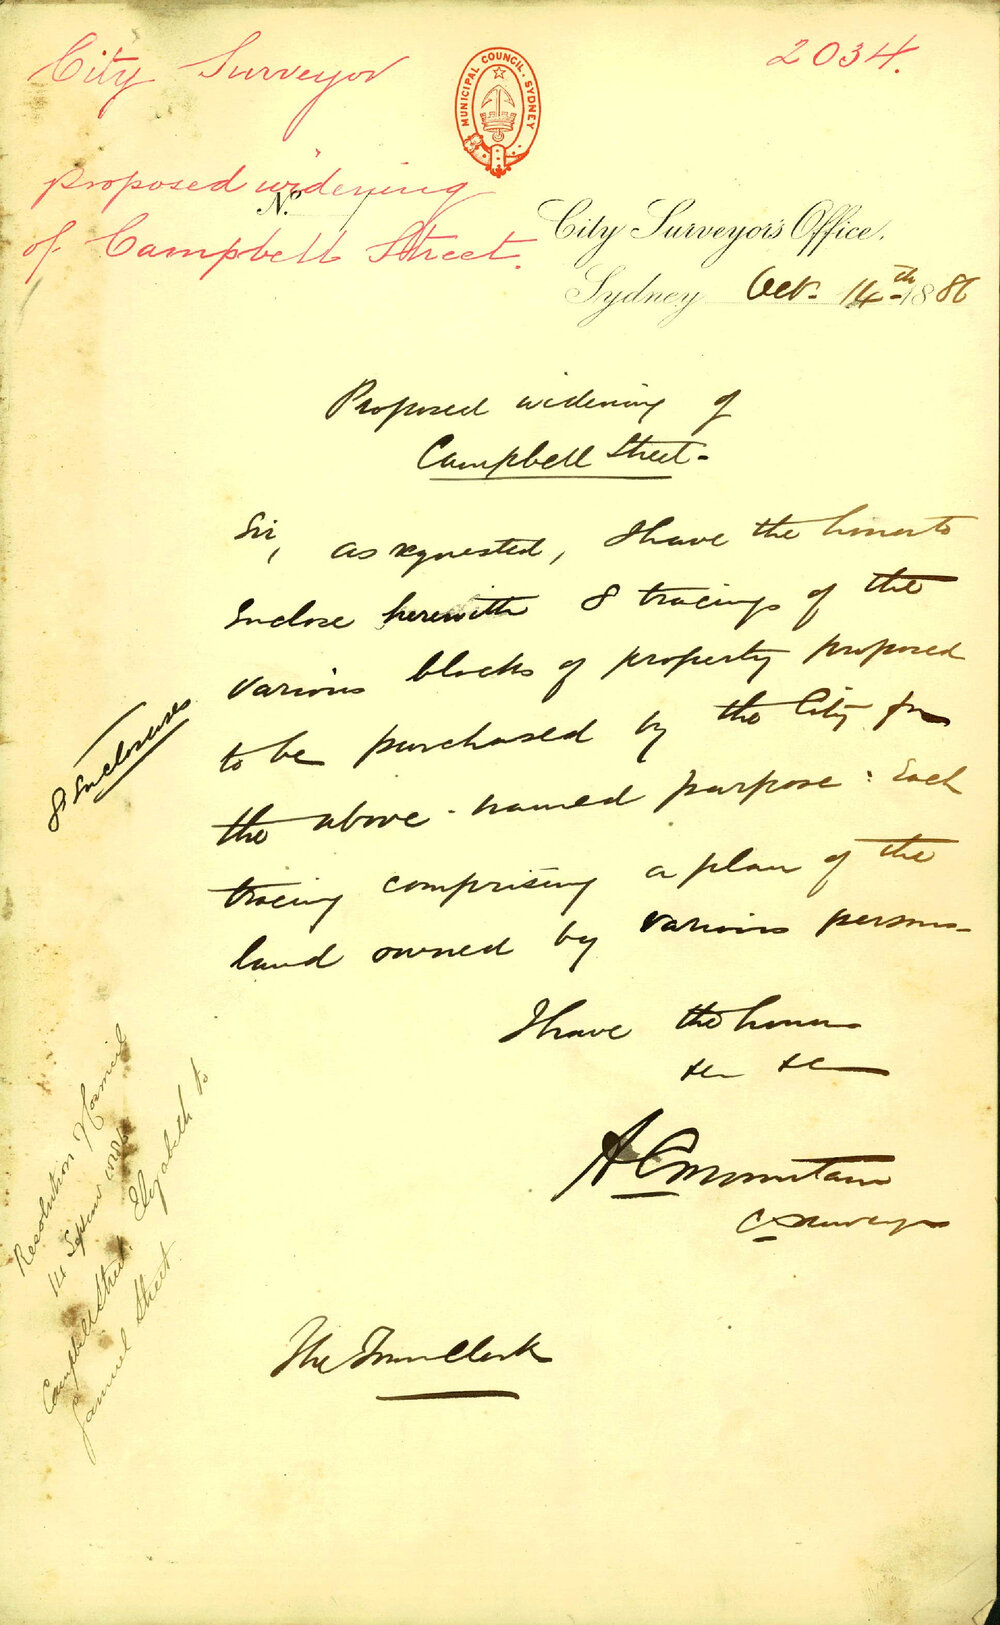 City Surveyor
2034.
MUNICIPAL COUNCIL. SYDNEY
proposed widening
of Campbell Street.
No.
City Surveyor's Office.
Sydney Oct. 14th 1886
Proposed widening of
Campbell Street-
Sir,
as requested, I have the honor to
Enclose herewith 8 tracings of the
various blocks of property proposed
to be purchased by the City for
the above-named purpose: Each
tracing comprising a plan of the
land owned by various persons-
I have the honor
&c &c
C Surveyor
The Town Clerk
8 Enclosures
Resolution
14 Septem
Campbell Street Elizabeth to
Samuel Street.